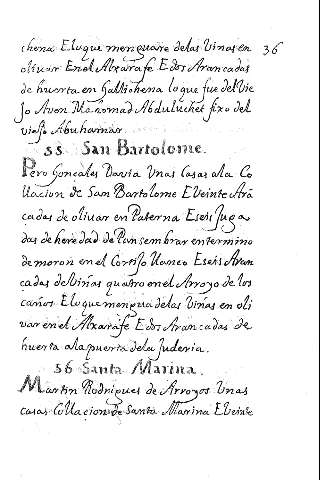 chena E loque menguare delas Viñas en
36
olivar En el Alxarafe E dos Arancadas
de huerta en Galtichena lo que fue del Vie
Jo Aven Mahomad Abduluchet fixo del
viejo Abuhamar
55 San Bartolome.
Pero Gonçales Davia Unas casas ala Co
llacion de San Bartolome E Veinte Arã
çadas de olivar en Paterna E seis Juga
das de heredad de Pan sembrar en termino
de moron en el Cortijo Uanco E seis Aran
cadas de Viñas quatro en el Arroyo de los
caños E loque mengua delas Viñas en oli
var en el Alxarafe E dos Arancadas de
huerta ala puerta dela Juderia.
56 Santa Marina.
Martin Rodrigues de Arroyos Unas
casas Collacion de Santa Marina E Veinte